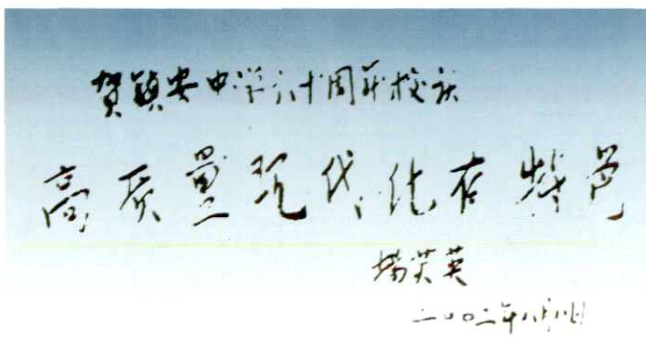 贺镇安中学六十周年校庆
高质量现代化有特色
杨芙英
二〇〇二年八月八日